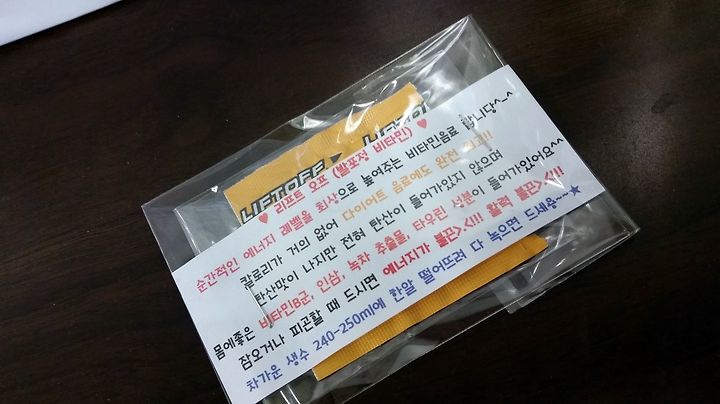 LIFTOFF LIFTOFF
♥ 리프트 오프 (발포정 비타민) ♥
순간적인 에너지 레벨을 최상으로 높여주는 비타민음료 합니당^-^
칼로리가 거의 없어 다이어트 음료에도 완전 최고!!
탄산맛이 나지만 전혀 탄산이 들어가있지 않으며
몸에좋은 비타민B군, 인삼, 녹차 추출물, 타우린 성분이 들어가있어요^^
잠오거나 피곤할 때 드시면 에너지가 불끈><!!! 활력 불끈><!!!
차가운 생수 240-250ml에 한알 떨어뜨려 다 녹으면 드세용~~★